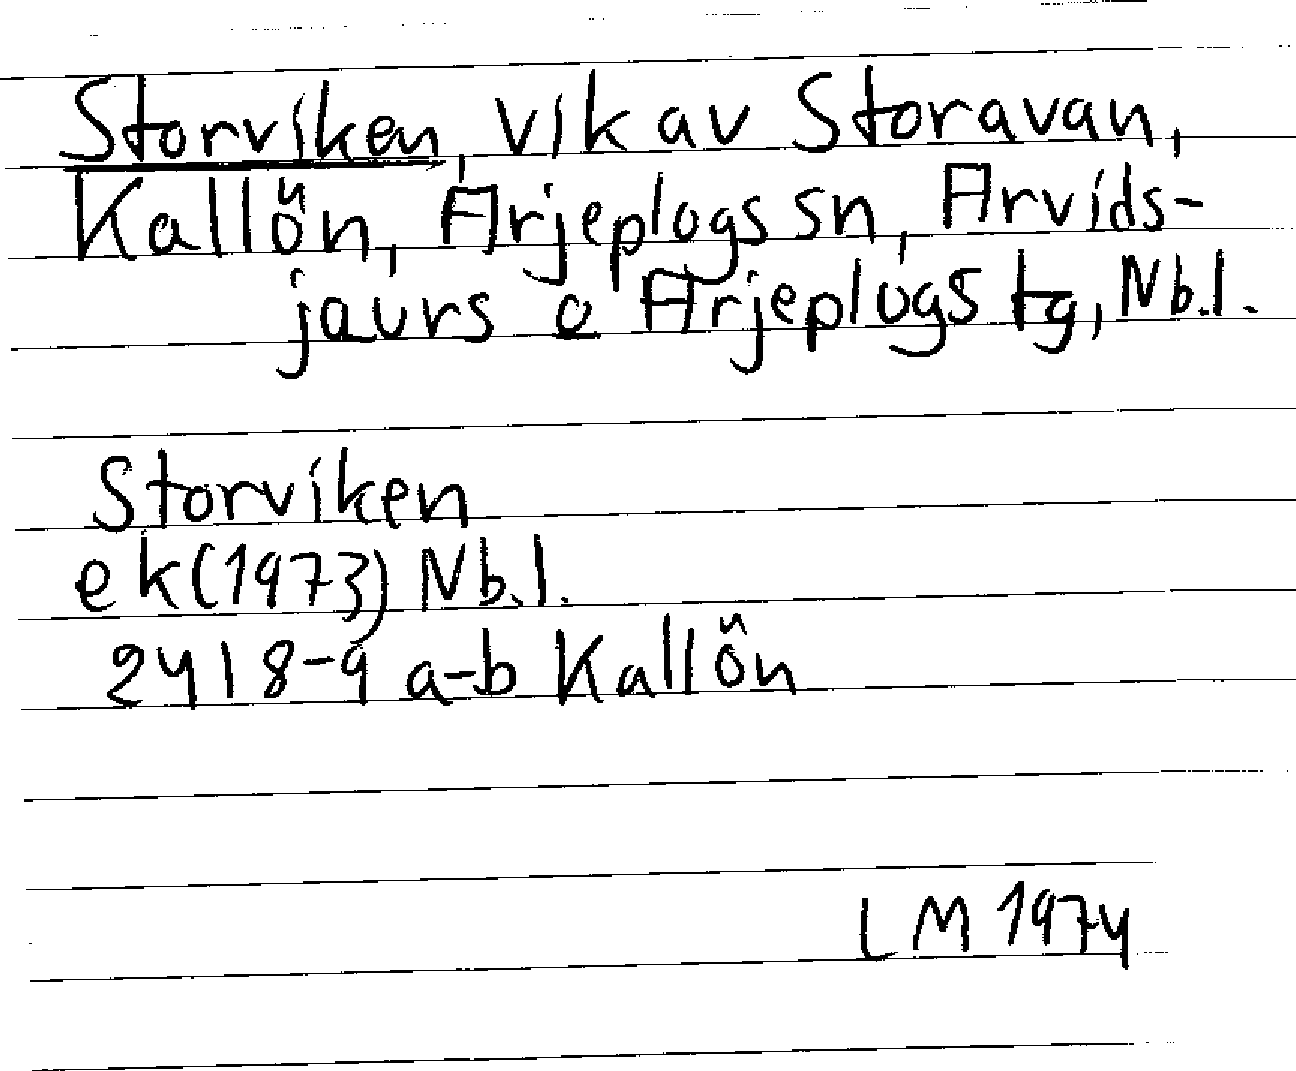 Storviken, vik av Storavan,
Kallön, Arjeplogs sn, Arvids-
jaurs o Arjeplogs tg, Nb.l.
Storviken
ek (1973) Nb.l.
24I 8-9 a-b Kallön
LM 1974